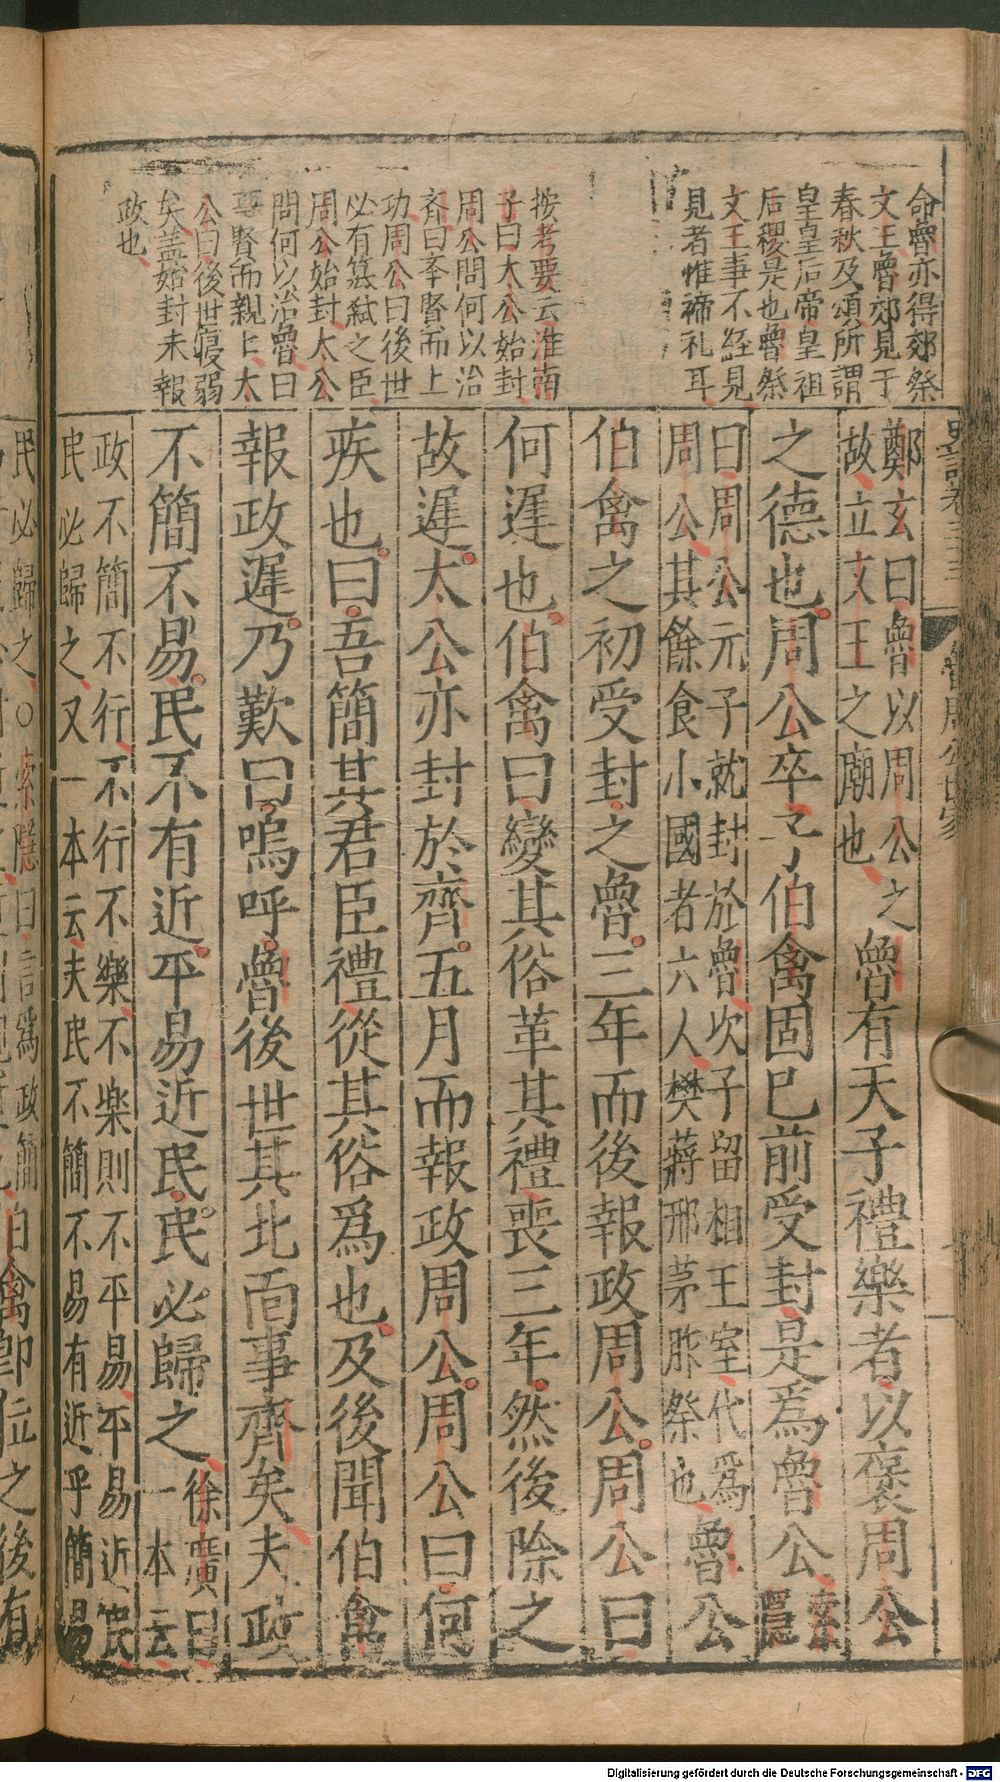 命魯亦得郊祭
文王魯郊見于
春秋及頌所謂
皇皇后帝皇祖
后稷是也魯祭
文王事不經見
見者惟禘礼耳
按考要云淮南
子曰太公始封
周公問何以治
齊曰夆賢而上
功周公曰後世
必有簒弑之臣
周公始封太公
問何以治魯曰
尊賢而親上太
公曰後世寝弱
矣盖始封未報
政也
魯周公世家
鄭玄曰魯以周公之
故立文王之廟也
魯有天子禮樂者以褒周公
之德也周公卒子伯禽固已前受封是爲魯公
索
隱
曰周公元子就封於魯次子留相王室代爲
周公其餘食小國者六人樊蔣邢茅胙祭也
魯公
伯禽之初受封之魯三年而後報政周公周公曰
何遲也伯禽曰變其俗革其禮喪三年然後除之
故遲太公亦封於齊五月而報政周公周公曰何
疾也曰吾簡其君臣禮從其俗爲也及後聞伯禽
報政遲乃歎曰嗚呼魯後世其北靣事齊矣夫政
不簡不易民不有近平易近民民必歸之
徐廣曰
一本云
政不簡不行不行不樂不楽則不平易平易近民
民必歸之又一本云夫民不簡不易有近乎簡易
民必歸之○索隱曰言爲政簡
伯禽即位之後有
Digitalisierung gefördert durch die Deutsche Forschungsgemeinschaft - DFG